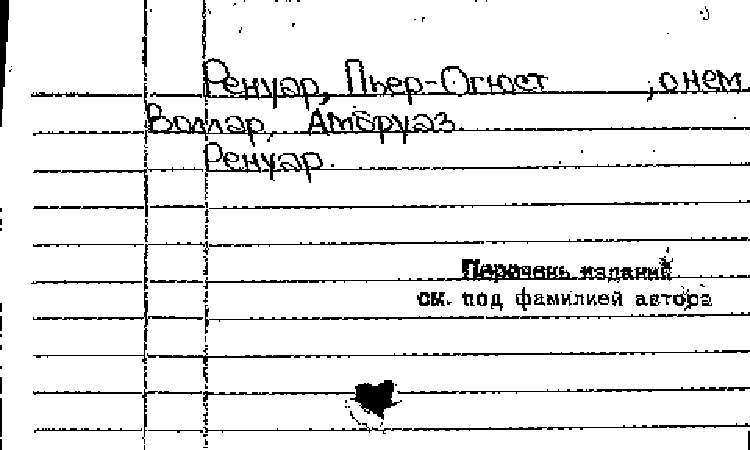 Ренуар, Пьер-Огюст ; о нем
Воллар, Амбруаз
Ренуар.
Перечень изданий
см. под фамилией автора